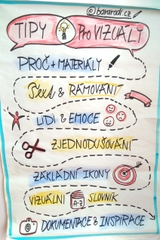 @barnarodi.cz
TIPY PRO VIZUÁLY
PROČ + MATERIÁLY
& RÁMOVÁNÍ
LIDI & EMOCE
ZJEDNODUŠOVÁNÍ
ZÁKLADNÍ IKONY
VIZUÁLNÍ A-Z SLOVNÍK
DOKUMENTACE & INSPIRACE